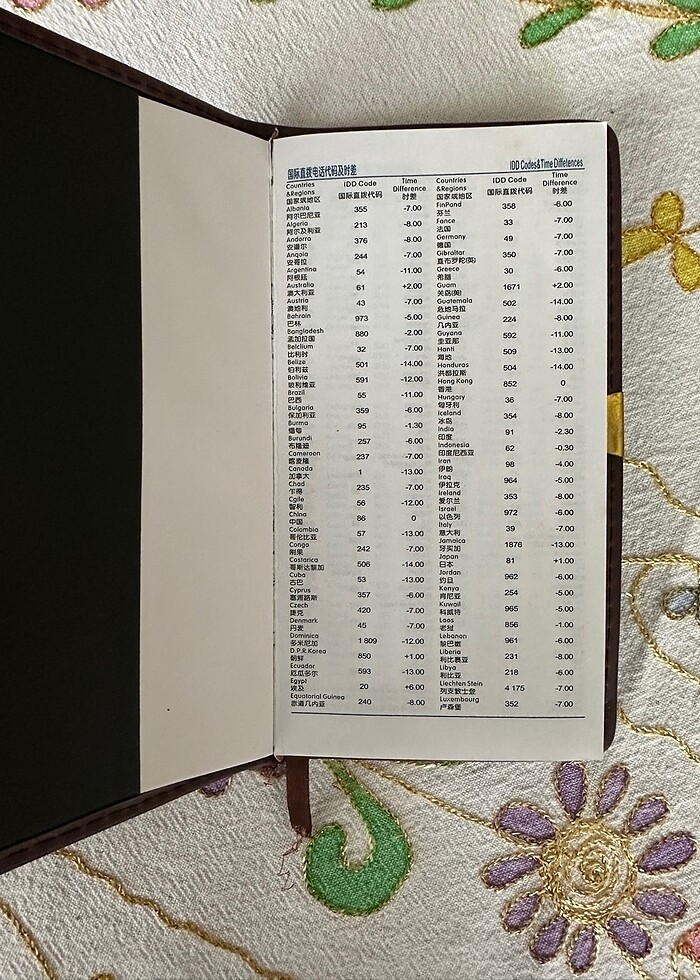 国际直拨电话代码及时差
IDD Codes&Time Diffetences
Countries
&Regions
国家或地区
IDD Code
国际直拨代码
Time
Difference
时差
Albania 355 -7.00
阿尔巴尼亚
Algeria 213 -8.00
阿尔及利亚
Andorra 376 -8.00
安道尔
Angola 244 -7.00
安哥拉
Argentina 54 -11.00
阿根廷
Australia 61 +2.00
澳大利亚
Austria 43 -7.00
澳地利
Bahrain 973 -5.00
巴林
Bangladesh 880 -2.00
孟加拉国
Belclium 32 -7.00
比利时
Belize 501 -14.00
伯利兹
Bolivia 591 -12.00
玻利维亚
Brazil 55 -11.00
巴西
Bulgaria 359 -6.00
保加利亚
Burma 95 -1.30
缅甸
Burundi 257 -6.00
布隆迪
Cameroon 237 -7.00
喀麦隆
Canada 1 -13.00
加拿大
Chad 235 -7.00
乍得
Cgile 56 -12.00
智利
China 86 0
中国
Colombia 57 -13.00
哥伦比亚
Congo 242 -7.00
刚果
Costarica 506 -14.00
哥斯达黎加
Cuba 53 -13.00
古巴
Cyprus 357 -6.00
塞浦路斯
Czech 420 -7.00
捷克
Denmark 45 -7.00
丹麦
Dominica 1 809 -12.00
多米尼加
D.P.R.Korea 850 +1.00
朝鲜
Ecuador 593 -13.00
厄瓜多尔
Egypt 20 +6.00
埃及
Equatorial Guinea 240 -8.00
赤道几内亚
Countries
&Regions
国家或地区
IDD Code
国际直拨代码
Time
Difference
时差
FinPand 358 -6.00
芬兰
Fance 33 -7.00
法国
Germany 49 -7.00
德国
Gibraltar 350 -7.00
直布罗陀(英)
Greece 30 -6.00
希腊
Guam 1671 +2.00
关岛(美)
Guatemala 502 -14.00
危地马拉
Guinea 224 -8.00
几内亚
Guyana 592 -11.00
圭亚那
Hanti 509 -13.00
海地
Honduras 504 -14.00
洪都拉斯
Hong Kong 852 0
香港
Hungary 36 -7.00
匈牙利
Iceland 354 -8.00
冰岛
India 91 -2.30
印度
Indonesia 62 -0.30
印度尼西亚
Iran 98 -4.00
伊朗
Iraq 964 -5.00
伊拉克
Ireland 353 -8.00
爱尔兰
Israel 972 -6.00
以色列
Italy 39 -7.00
意大利
Jamaica 1876 -13.00
牙买加
Japan 81 +1.00
日本
Jordan 962 -6.00
约旦
Kenya 254 -5.00
肯尼亚
Kuwail 965 -5.00
科威特
Laos 856 -1.00
老挝
Lebanon 961 -6.00
黎巴嫩
Liberia 231 -8.00
利比赛亚
Libya 218 -6.00
利比亚
Liechten Stein 4 175 -7.00
列支敦士登
Luxembourg 352 -7.00
卢森堡